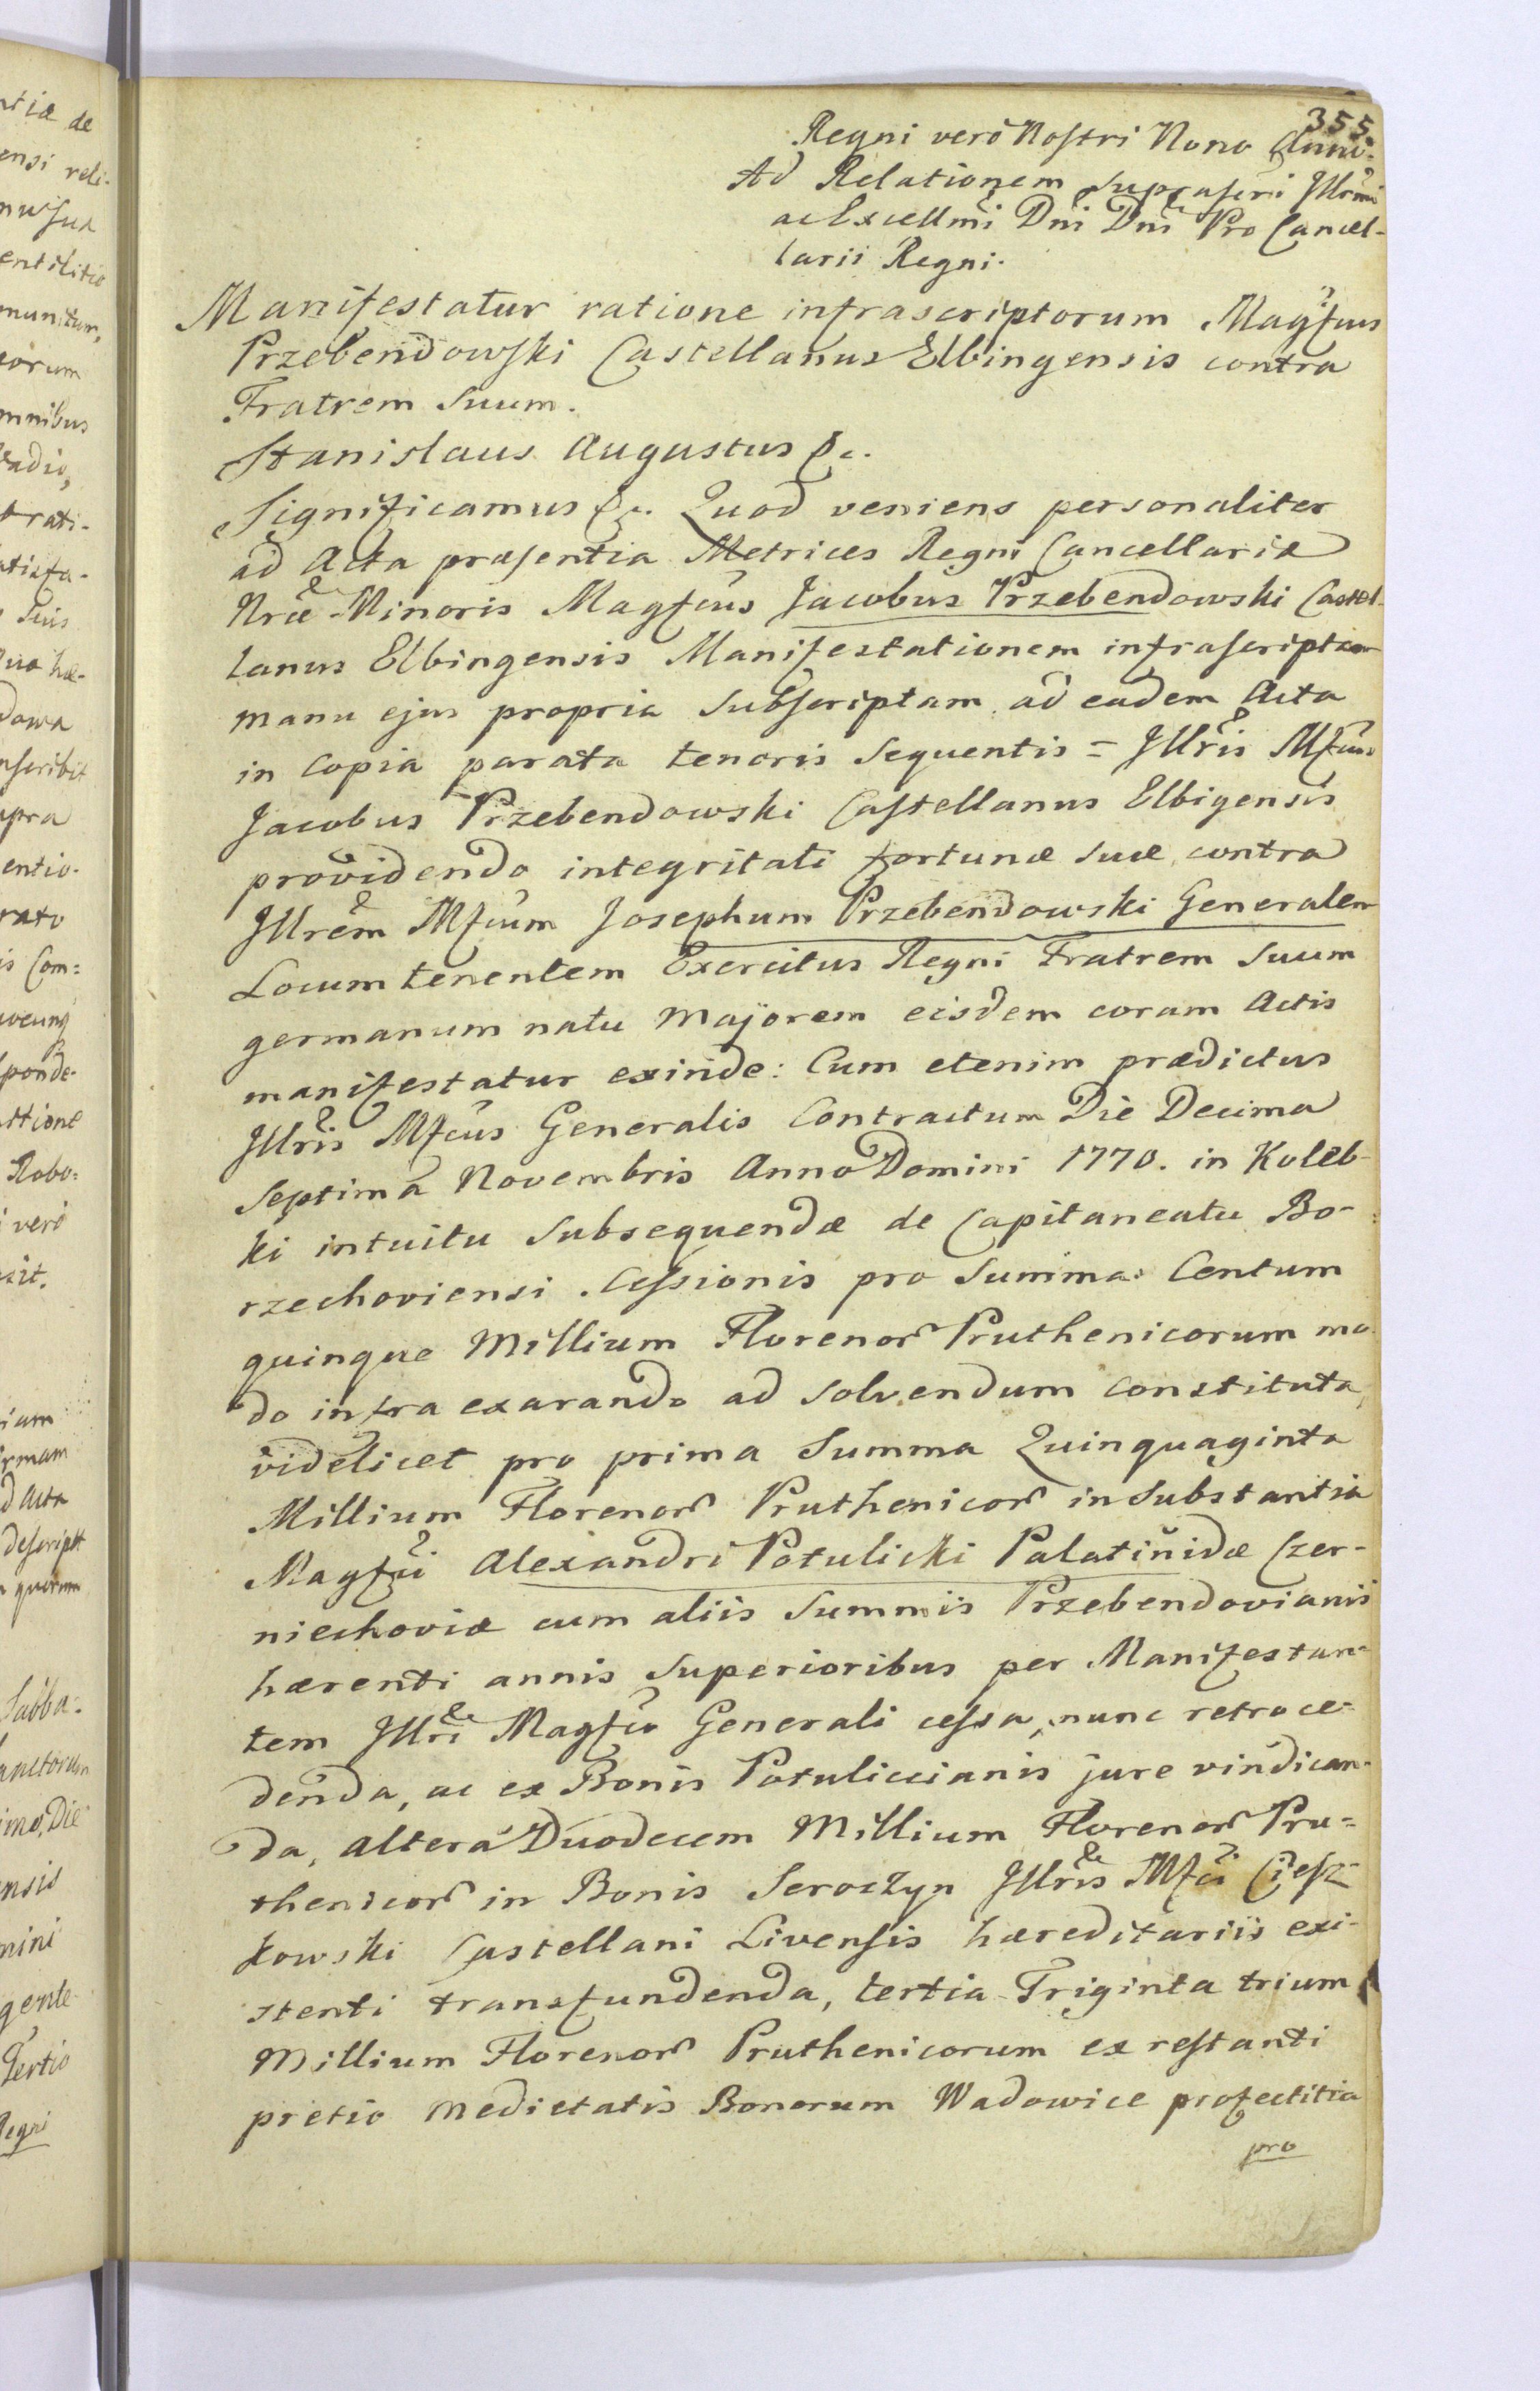 355.
Regni verò Nostri Nono Anno.
Ad Relationem suprascri Illrmi
ac Excellmi Dni Dni Pro Cancel-
larii Regni.
Manifestatur ratione infrascriptorum Magfcus
Przebendowski Castellanus Elbingensis contra
Fratrem Suum.
Stanislaus Augustus &c.
Significamus &c. Quod veniens personaliter
ad Acta præsentia Metrices Regni Cancellariæ
Nræ Minoris Magfcus Jacobus Przebendowski Castel-
lanus Elbingensis Manifestationem infrascriptam
manu ejus propria Subscriptam ad eadem Acta
in Copia parata tenoris Sequentis = Illris Mfcus
Jacobus Przebendowski Castellanus Elbigensis
providendo integritati fortunæ suæ contra
Illrem Mfcum Josephum Przebendowski Generalem
Locum tenentem Exercitus Regni Fratrem Suum
germanum natu Majorem eisdem coram Actis
manifestatur exinde: Cum etenim prædictus
Illris Mfcus Generalis Contractum Die Decima
Septimâ Novembris Anno Domini 1770. in Koleb-
ki intuitu Subsequendæ de Capitaneatu Bo-
rzechoviensi Cessionis pro Summa Centum
quinque Millium Florenor Pruthenicorum mo
do infra exarando ad Solvendum Constituta,
videlicet pro prima Summa Quinquaginta
Millium Florenor Pruthenicor in Substantia
Magfci Alexandri Potulicki Palatinidæ Czer-
niechoviæ cum aliis Summis Przebendovianis
hærenti annis Superioribus per Manifestan-
tem Illri Magfco Generali cessa, nunc retroce-
denda, ac ex Bonis Potuliccianis jure vindican-
da, alterâ Duodecem Millium Florenor Pru=
thenicor in Bonis Seroczyn Illris Mfci Ciesz-
kowski Castellani Livensis hæreditariis exi-
stenti transfundenda, tertia Triginta trium
Millium Florenor Pruthenicorum ex restanti
pretio Medietatis Bonorum Wadowice profectitia
pro